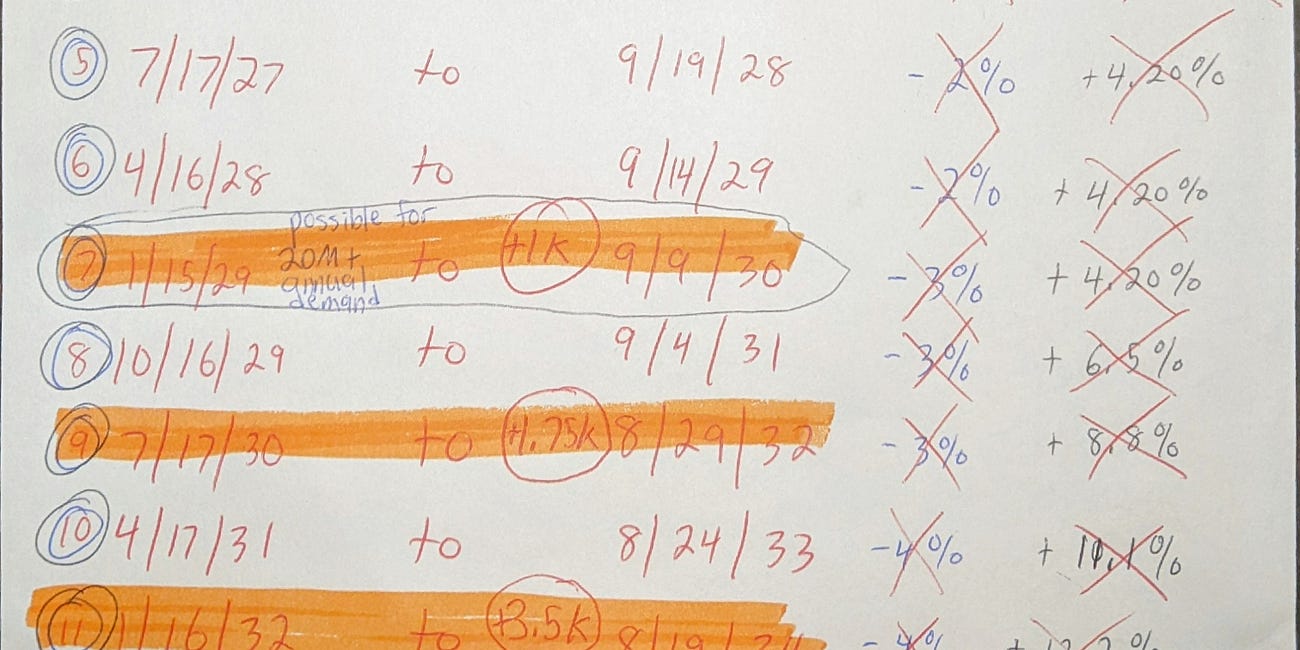 5 7/17/27 to 9/19/28 - 2% + 4.20%
6 4/16/28 to 9/14/29 - 2% + 4.20%
possible for
7 1/15/29 20M+ to +1K 9/9/30 - 3% + 4.20%
annual
demand
8 10/16/29 to 9/4/31 - 3% + 6.5%
9 7/17/30 to +1.75K 8/29/32 - 3% + 8.8%
10 4/17/31 to 8/24/33 - 4% + 11.1%
11 1/16/32 to +3.5K 8/19/34 - 4%